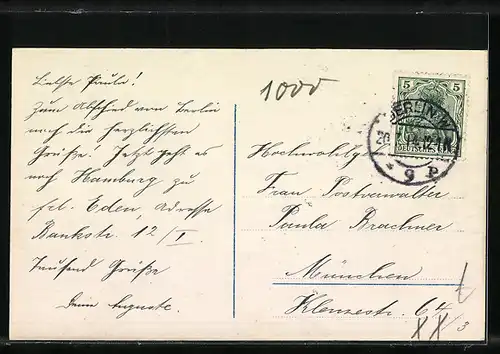 Liebste Paula!
Zum Abschied von Berlin
noch die herzlichsten
Grüße! Jetzt geht es
nach Hamburg zu
frl. Eden, Adresse
Bankstr. 12/I.
Tausend Grüße
Deine Auguste.
1000
5 5
BERLIN.W.
DEUTSCHES REICH
* 9 P
Hochwohlg
Frau Postverwalter
Paula Brachner
München
Klenzestr. 64